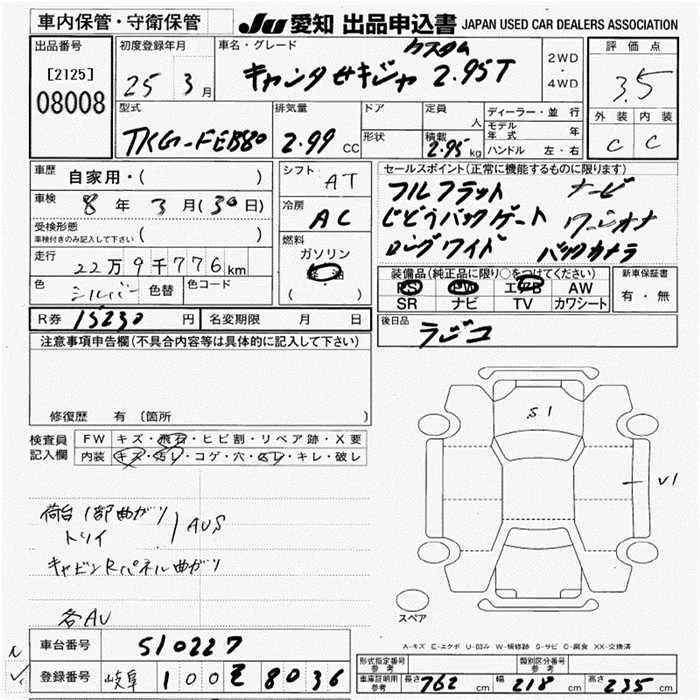 車内保管・守衛保管 JU 愛知 出品申込書 JAPAN USED CAR DEALERS ASSOCIATION
出品番号 [2125] 08008
初度登録年月 25 3月
車名・グレード カスタム
キャンタ セキジャ 2.95T
2WD・4WD
評価点 3.5
外装 内装
C C
型式 TKG-FEB80
排気量 2.99 CC
ドア 形状
定員 人
積載 2.95 kg
ディーラー・並行
モデル年式 年
ハンドル 左・右
車歴 自家用・( )
車検 8年 3月(30日)
受検形態
車検付きのみ記入して下さい ( )
走行 22万9千776km
色 シルバー 色替 色コード
シフト AT
冷房 AC
燃料 ガソリン
軽油
( )
セールスポイント(正常に機能するものに限ります)
フルフラット ナービ
じどうバックゲート ワーンオナ
ロングワイド バックカメラ
装備品(純正品に限り○をつけてください)
PS PW エアB AW
SR ナビ TV カワシート
新車保証書
有・無
R券 15230円 名変期限 月 日
後日品 ラジコ
注意事項申告欄(不具合内容等は具体的に記入して下さい)
修復歴 有(箇所
検査員記入欄
FW キズ・飛石・ヒビ割・リペア跡・X要
内装 キズ・汚レ・コゲ・穴・スレ・キレ・破レ
S1
V1
荷台1部曲がり
トリイ AUS
キャビンRパネル曲がり
各AU
スペア
A-キズ E-エクボ U-凹み W-補修跡 S-サビ C-腐食 XX-交換済
車台番号 510227
登録番号 岐阜 100 そ 8036
形式指定番号 参考
類別区分番号 参考
車庫証明用 参考 長さ 762 cm 幅 218 cm 高さ 235 cm